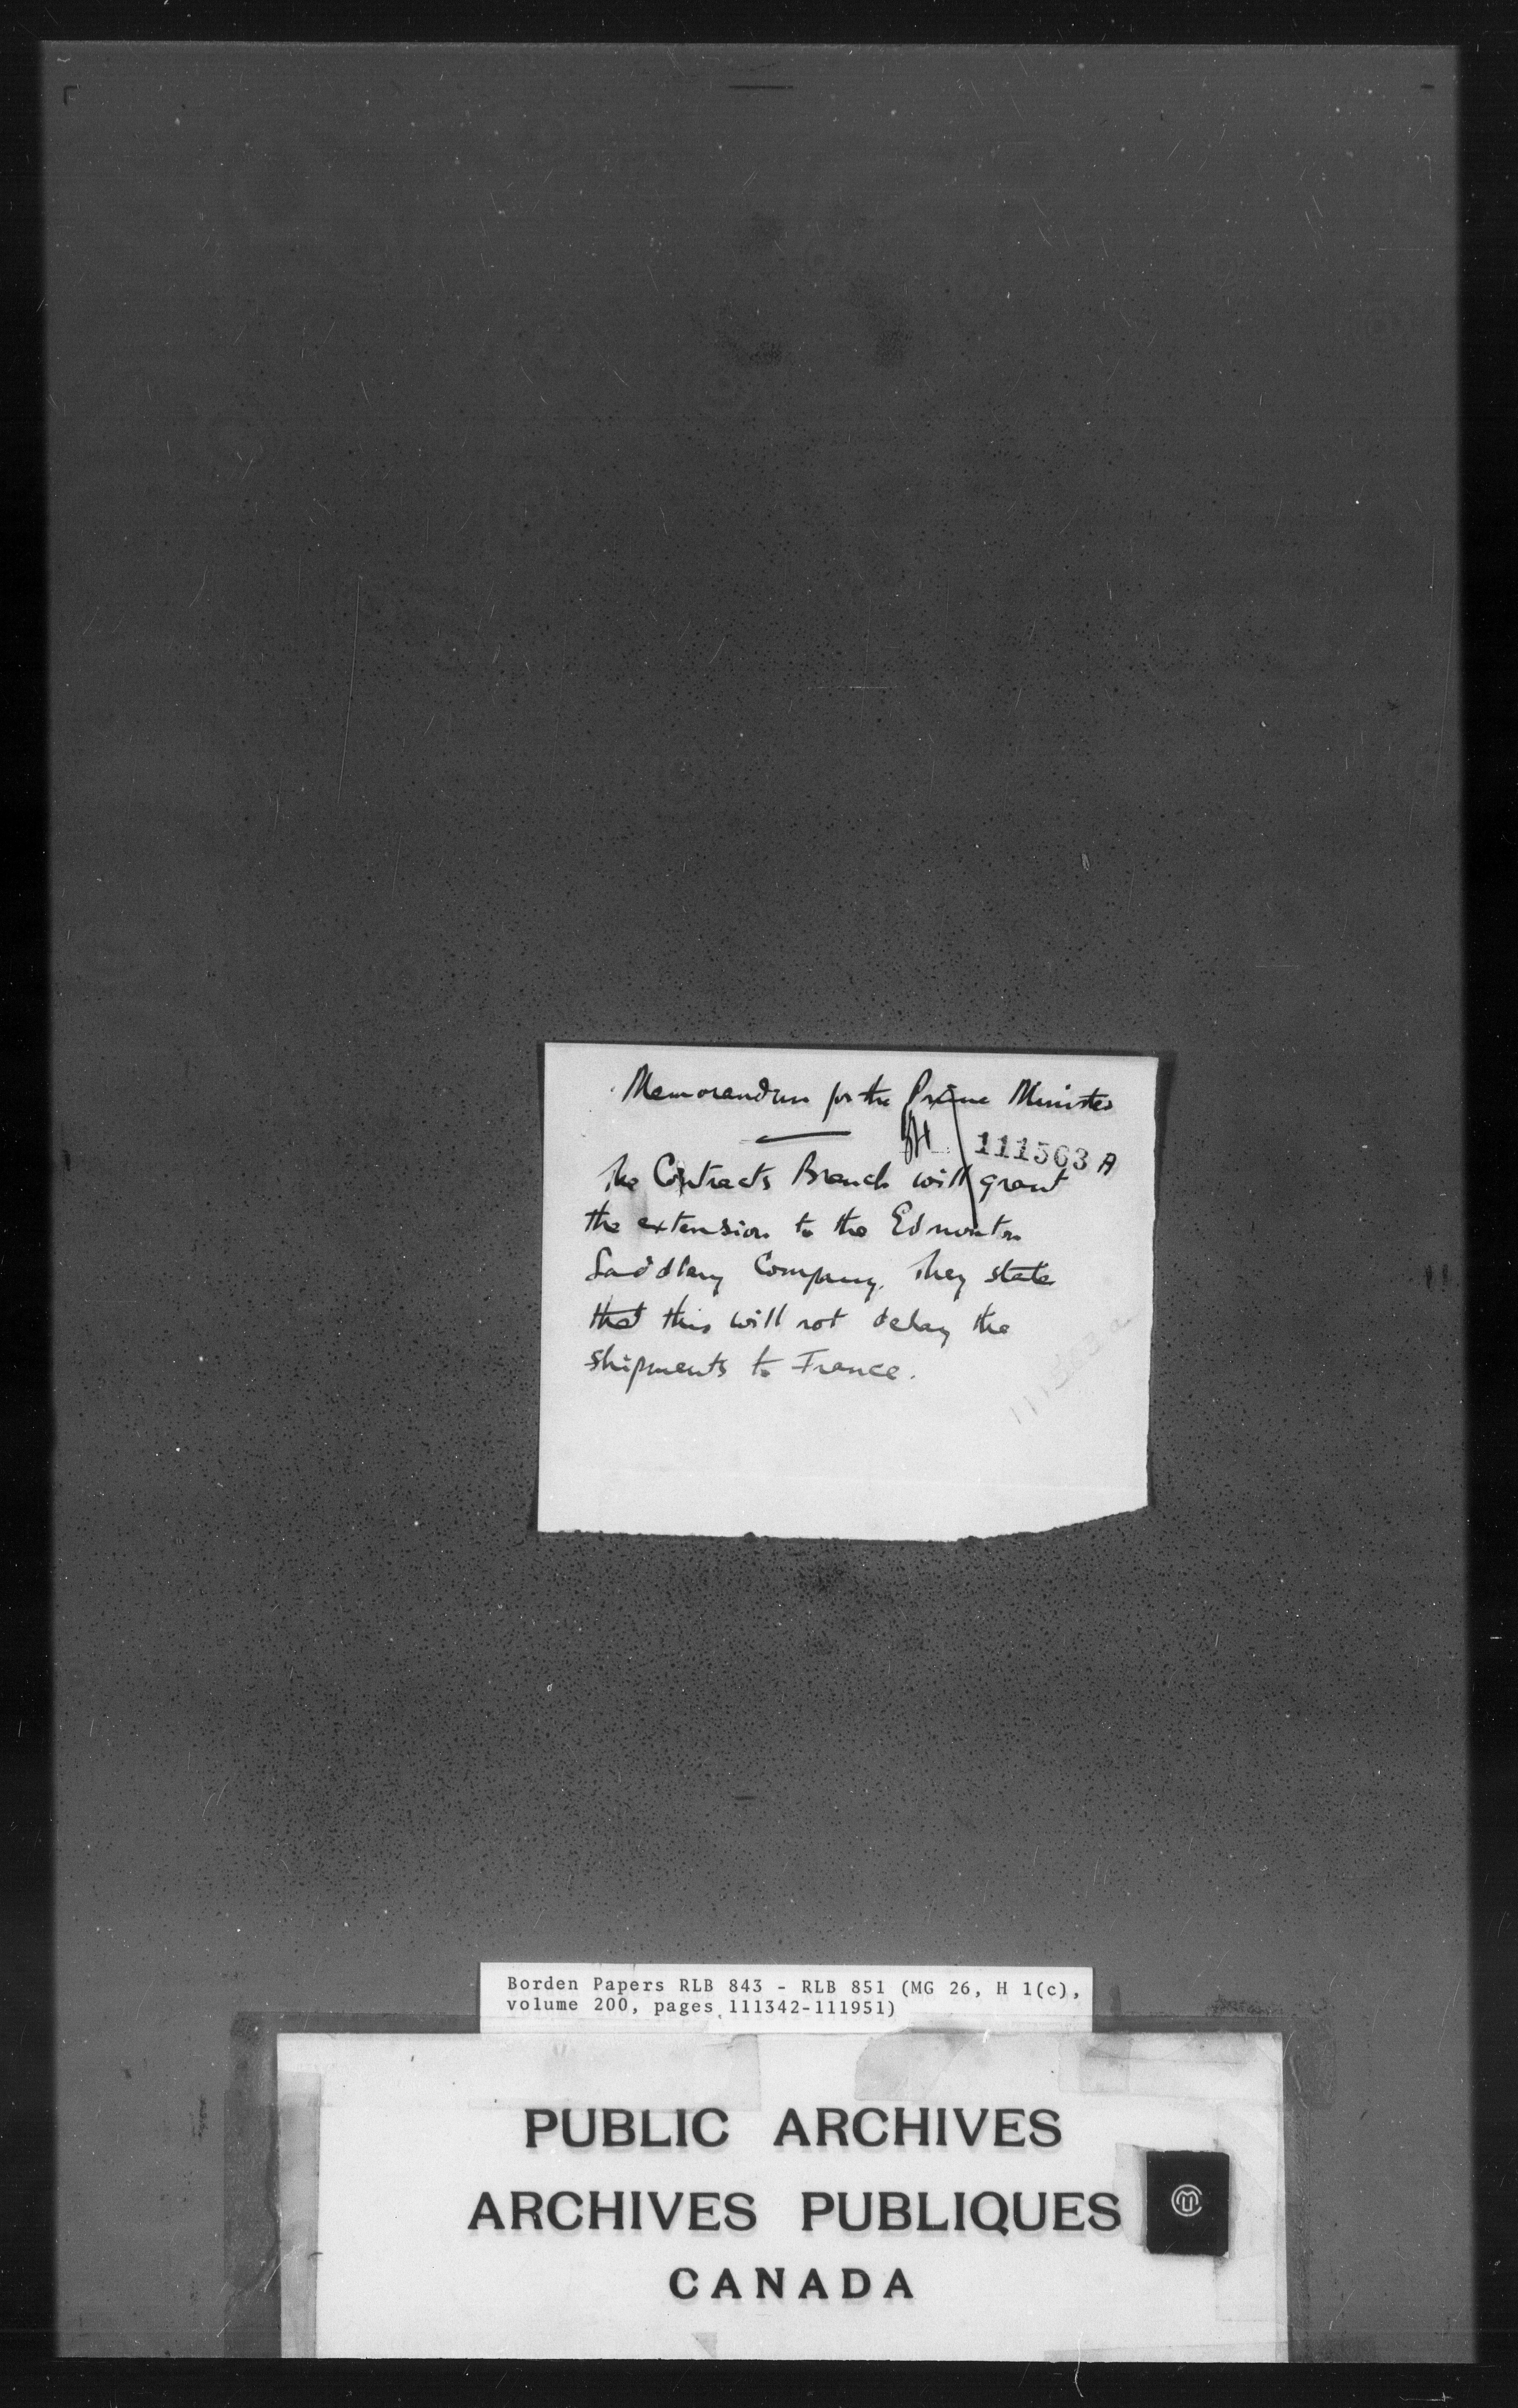 Memorandum for the Prime Minister
111563 A
The Contracts Branch will grant
the extension to the Edmonton
Saddlery Company. They state
that this will not delay the
shipments to France.
Borden Papers RLB 843 - RLB 851 (MG 26, H 1(c),
volume 200, pages 111342-111951)
PUBLIC ARCHIVES
ARCHIVES PUBLIQUES
CANADA